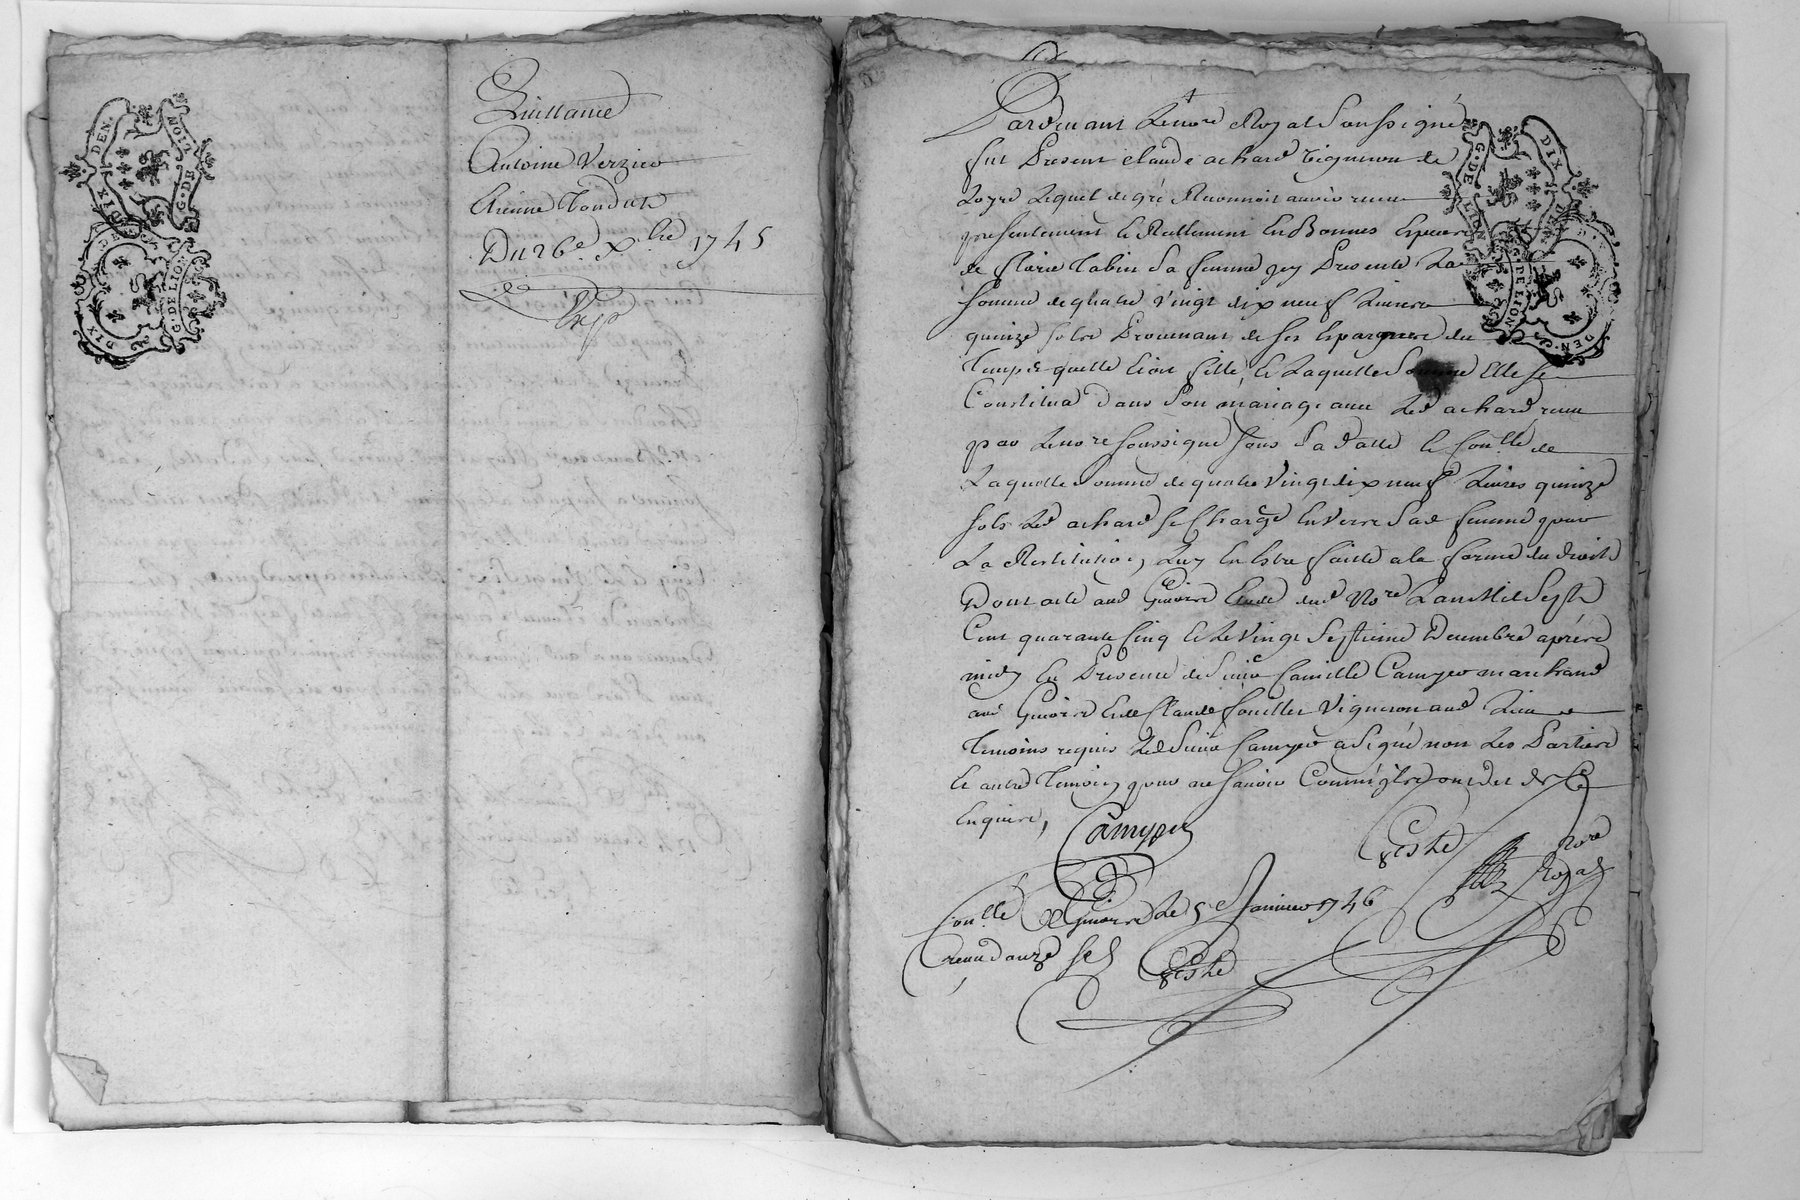 Quittance
Antoine Verzier
Etienne Tondut
Du 26e. Xbre 1745
Exp
DIX DEN.
G. DE LION
DIX DEN.
G. DE LION
Pardevant Le no.re Royal Soussigné
fut Present Claude achard Vigneron de
Loyre Lequel de gré Reconnoit avoir receu
presentement et Reellement En Bonnes Especes
de Tabin Sa femme icy Presente La
Somme de quatre Vingt dix neuf Livres
quinze sols Provenant de ses Epargnes du
Temps quelle Etoit fille, et Laquelle Somme Elle se
Constitua Dans Son mariage avec Led achard receu
par Le no.re soussigné sous Sa Datte et Con.llé de
Laquelle Somme de quatre Vingt dix neuf Livres quinze
sols Led achard se Charge Envers Sad femme pour
La Restitution Luy En Estre faitte a la forme du droit
Dont acte aud Givors Etude dud No.re L'an Mil Sept
Cent quarante Cinq et Le Vingt Septieme Decembre apres
midy En Presence de Sieur Camille Camyer marchand
aud Givors Et de Claude fouillet Vigneron aud Lieu
Temoins requis Led Sieur Camyer a Signé non Les Parties
Et autre Temoin pour ne Savoir Comm'ils ont dit de Ce
Enquis,
Camyer
No.re
Royal
Con.llé a Givors Le 5e Janvier 1746
receu douze sols
G. DE LION
DIX DEN.
G. DE LION
DIX DEN.